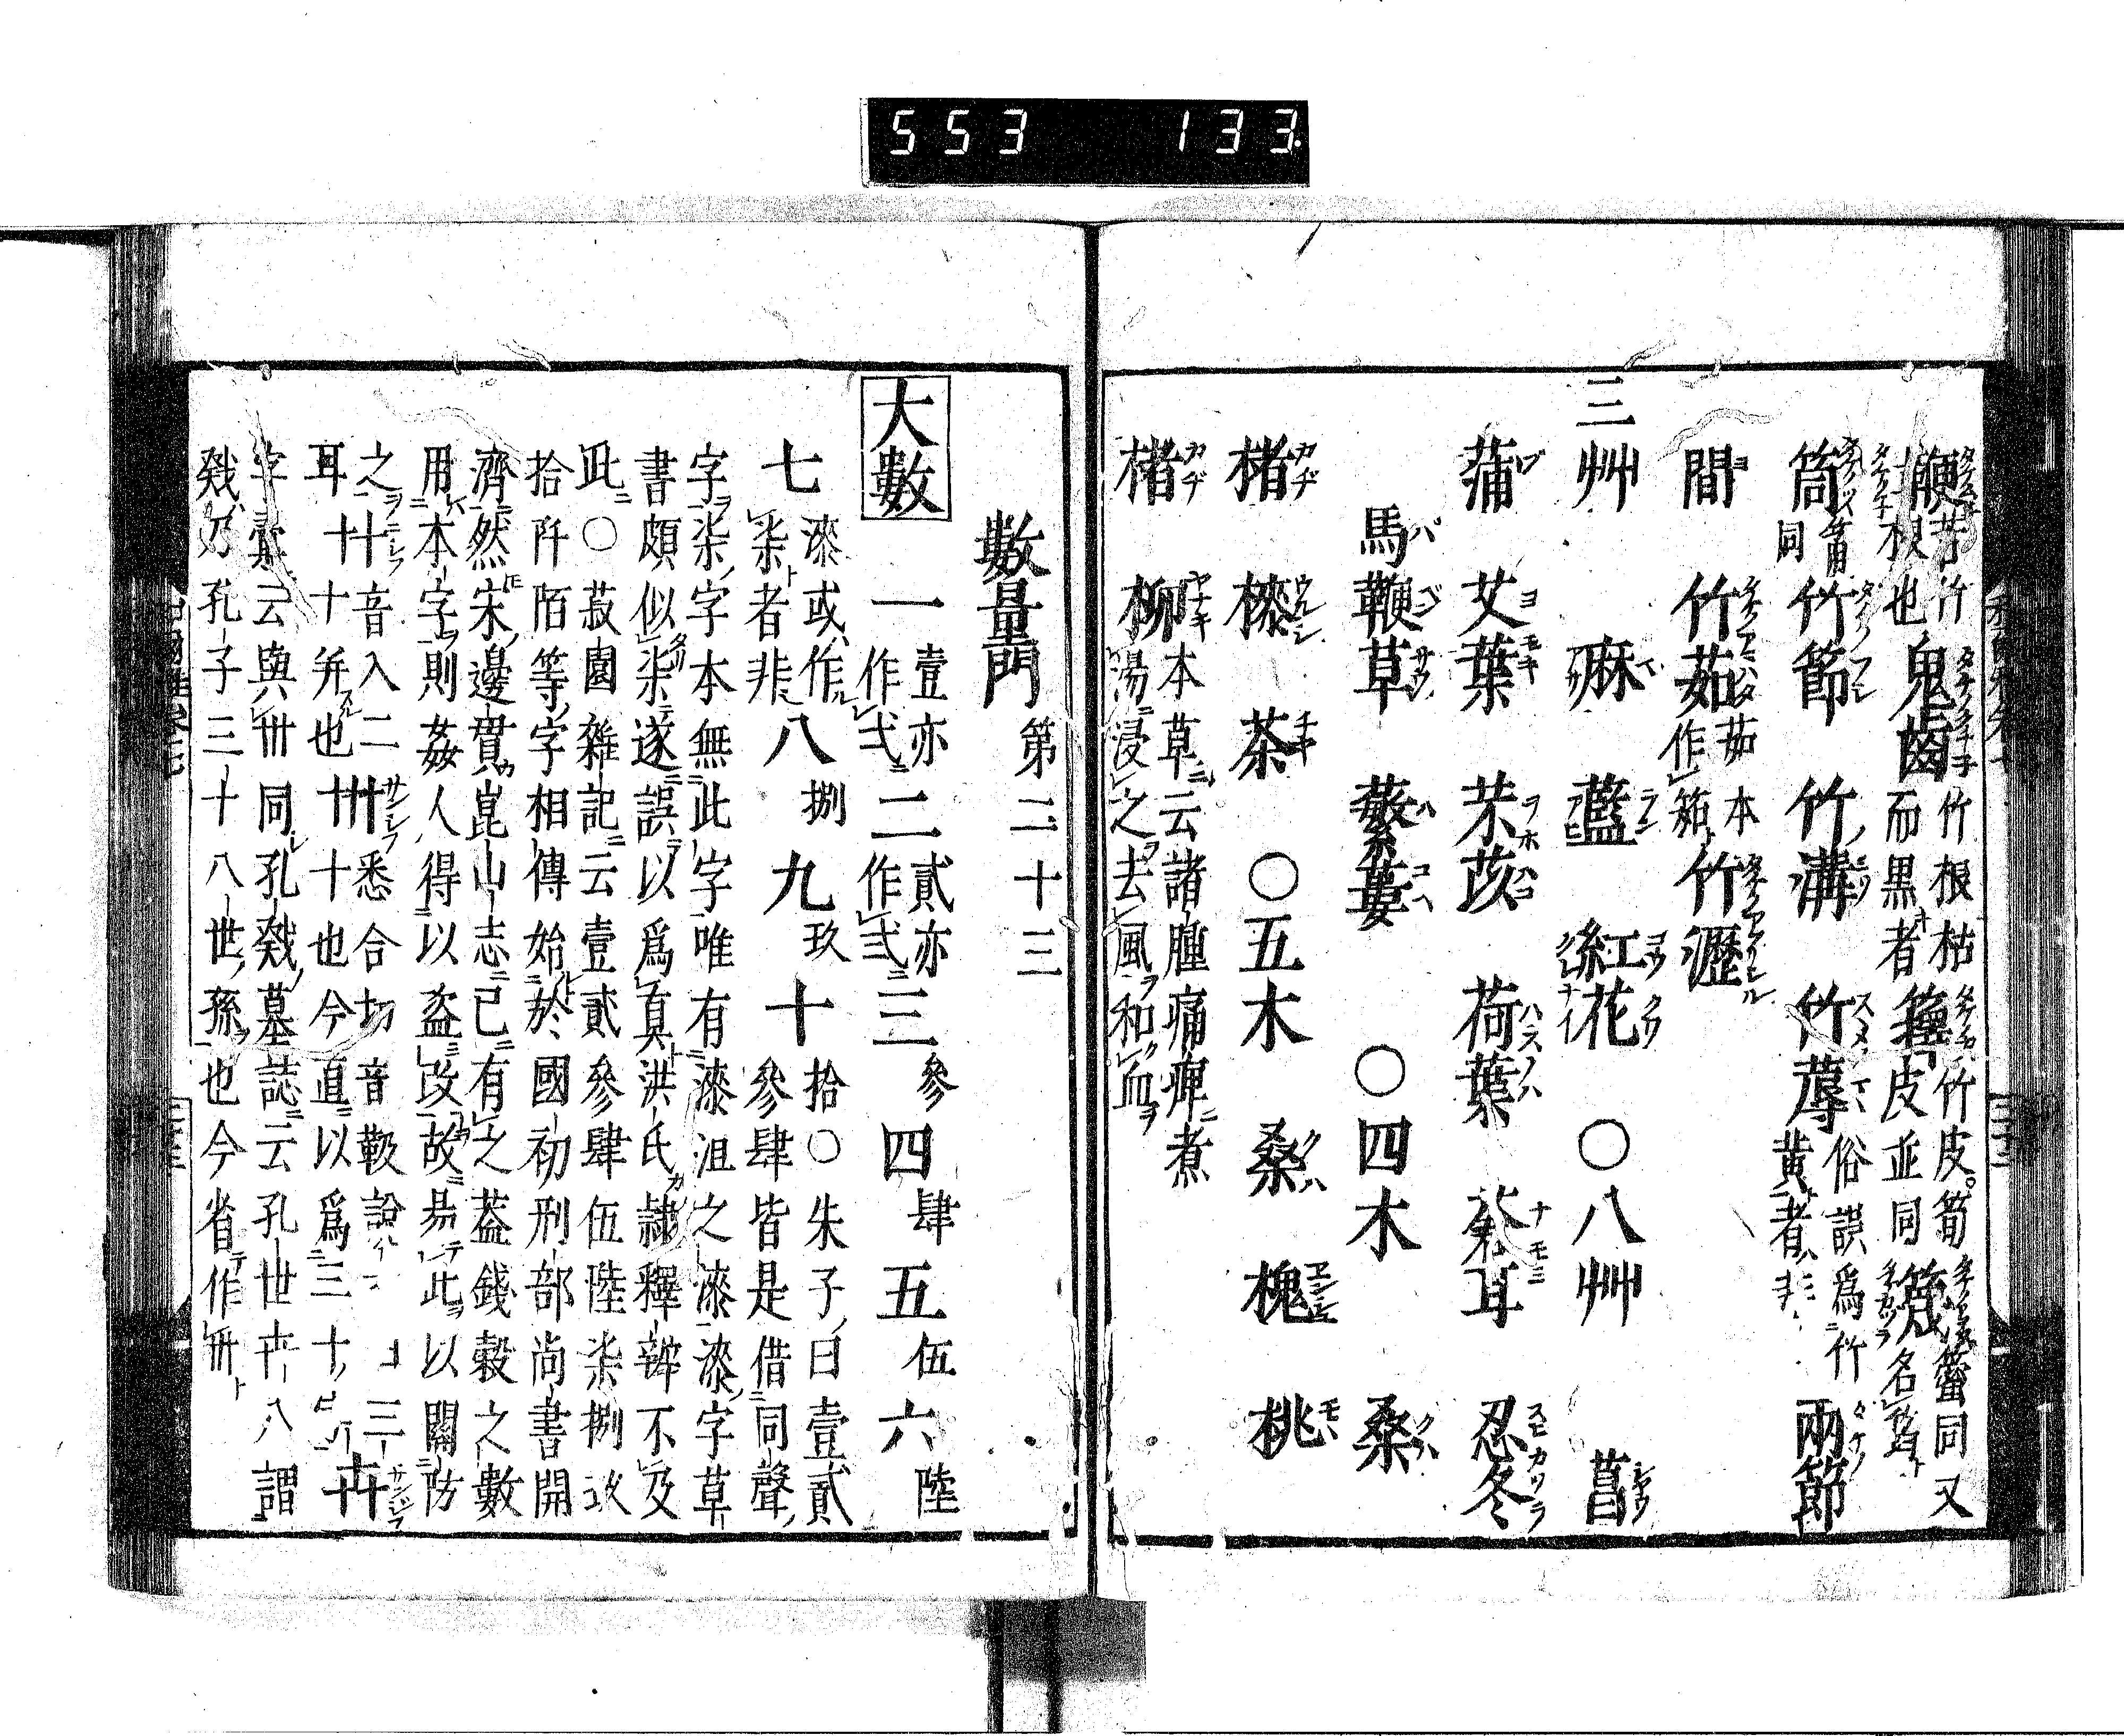 553 133
鞭 苦竹根也 鬼齒 竹根枯而黒者 籜 竹皮筍皮並同 𥳑 同又名
筒 同 竹節 竹溝 竹蓐 俗誤爲竹黄者 兩節
間 竹茹 茹本作筎 竹瀝
三艸 麻 藍 紅花 〇八艸 菖
蒲 艾葉 芣苡 荷葉 葈耳 忍冬
馬鞭草 蘩蔞 〇四木 桑
楮 㯃 茶 〇五木 桑 槐 桃
楮 柳 本草云諸腫痛痺煮湯浸之去風和血
數量門 第二十三
大數 一 壹亦作弌 二 貳亦作弍 三 參 四 肆 五 伍 六 陸
七 漆或作柒者非 八 捌 九 玖 十 拾〇朱子曰壹貳參肆皆是借同聲
字柒字本無此字唯有漆沮之漆漆字草
書頗似柒遂誤以爲眞洪氏隷釋辨不及
此〇菽園雜記云壹貳參肆伍陸柒捌玖
拾阡陌等字相傳始於國初刑部尚書開
濟然宋邊實崑山志已有之葢錢穀之數
用本字則姦人得以盗改故易此以關防
之耳 卄 音入二十并也 卅 悉合切音靸説三十也今直以爲三十 卌
字彙云與卌同孔戣墓誌云孔世卌八謂
戣乃孔子三十八世孫也今省作卌